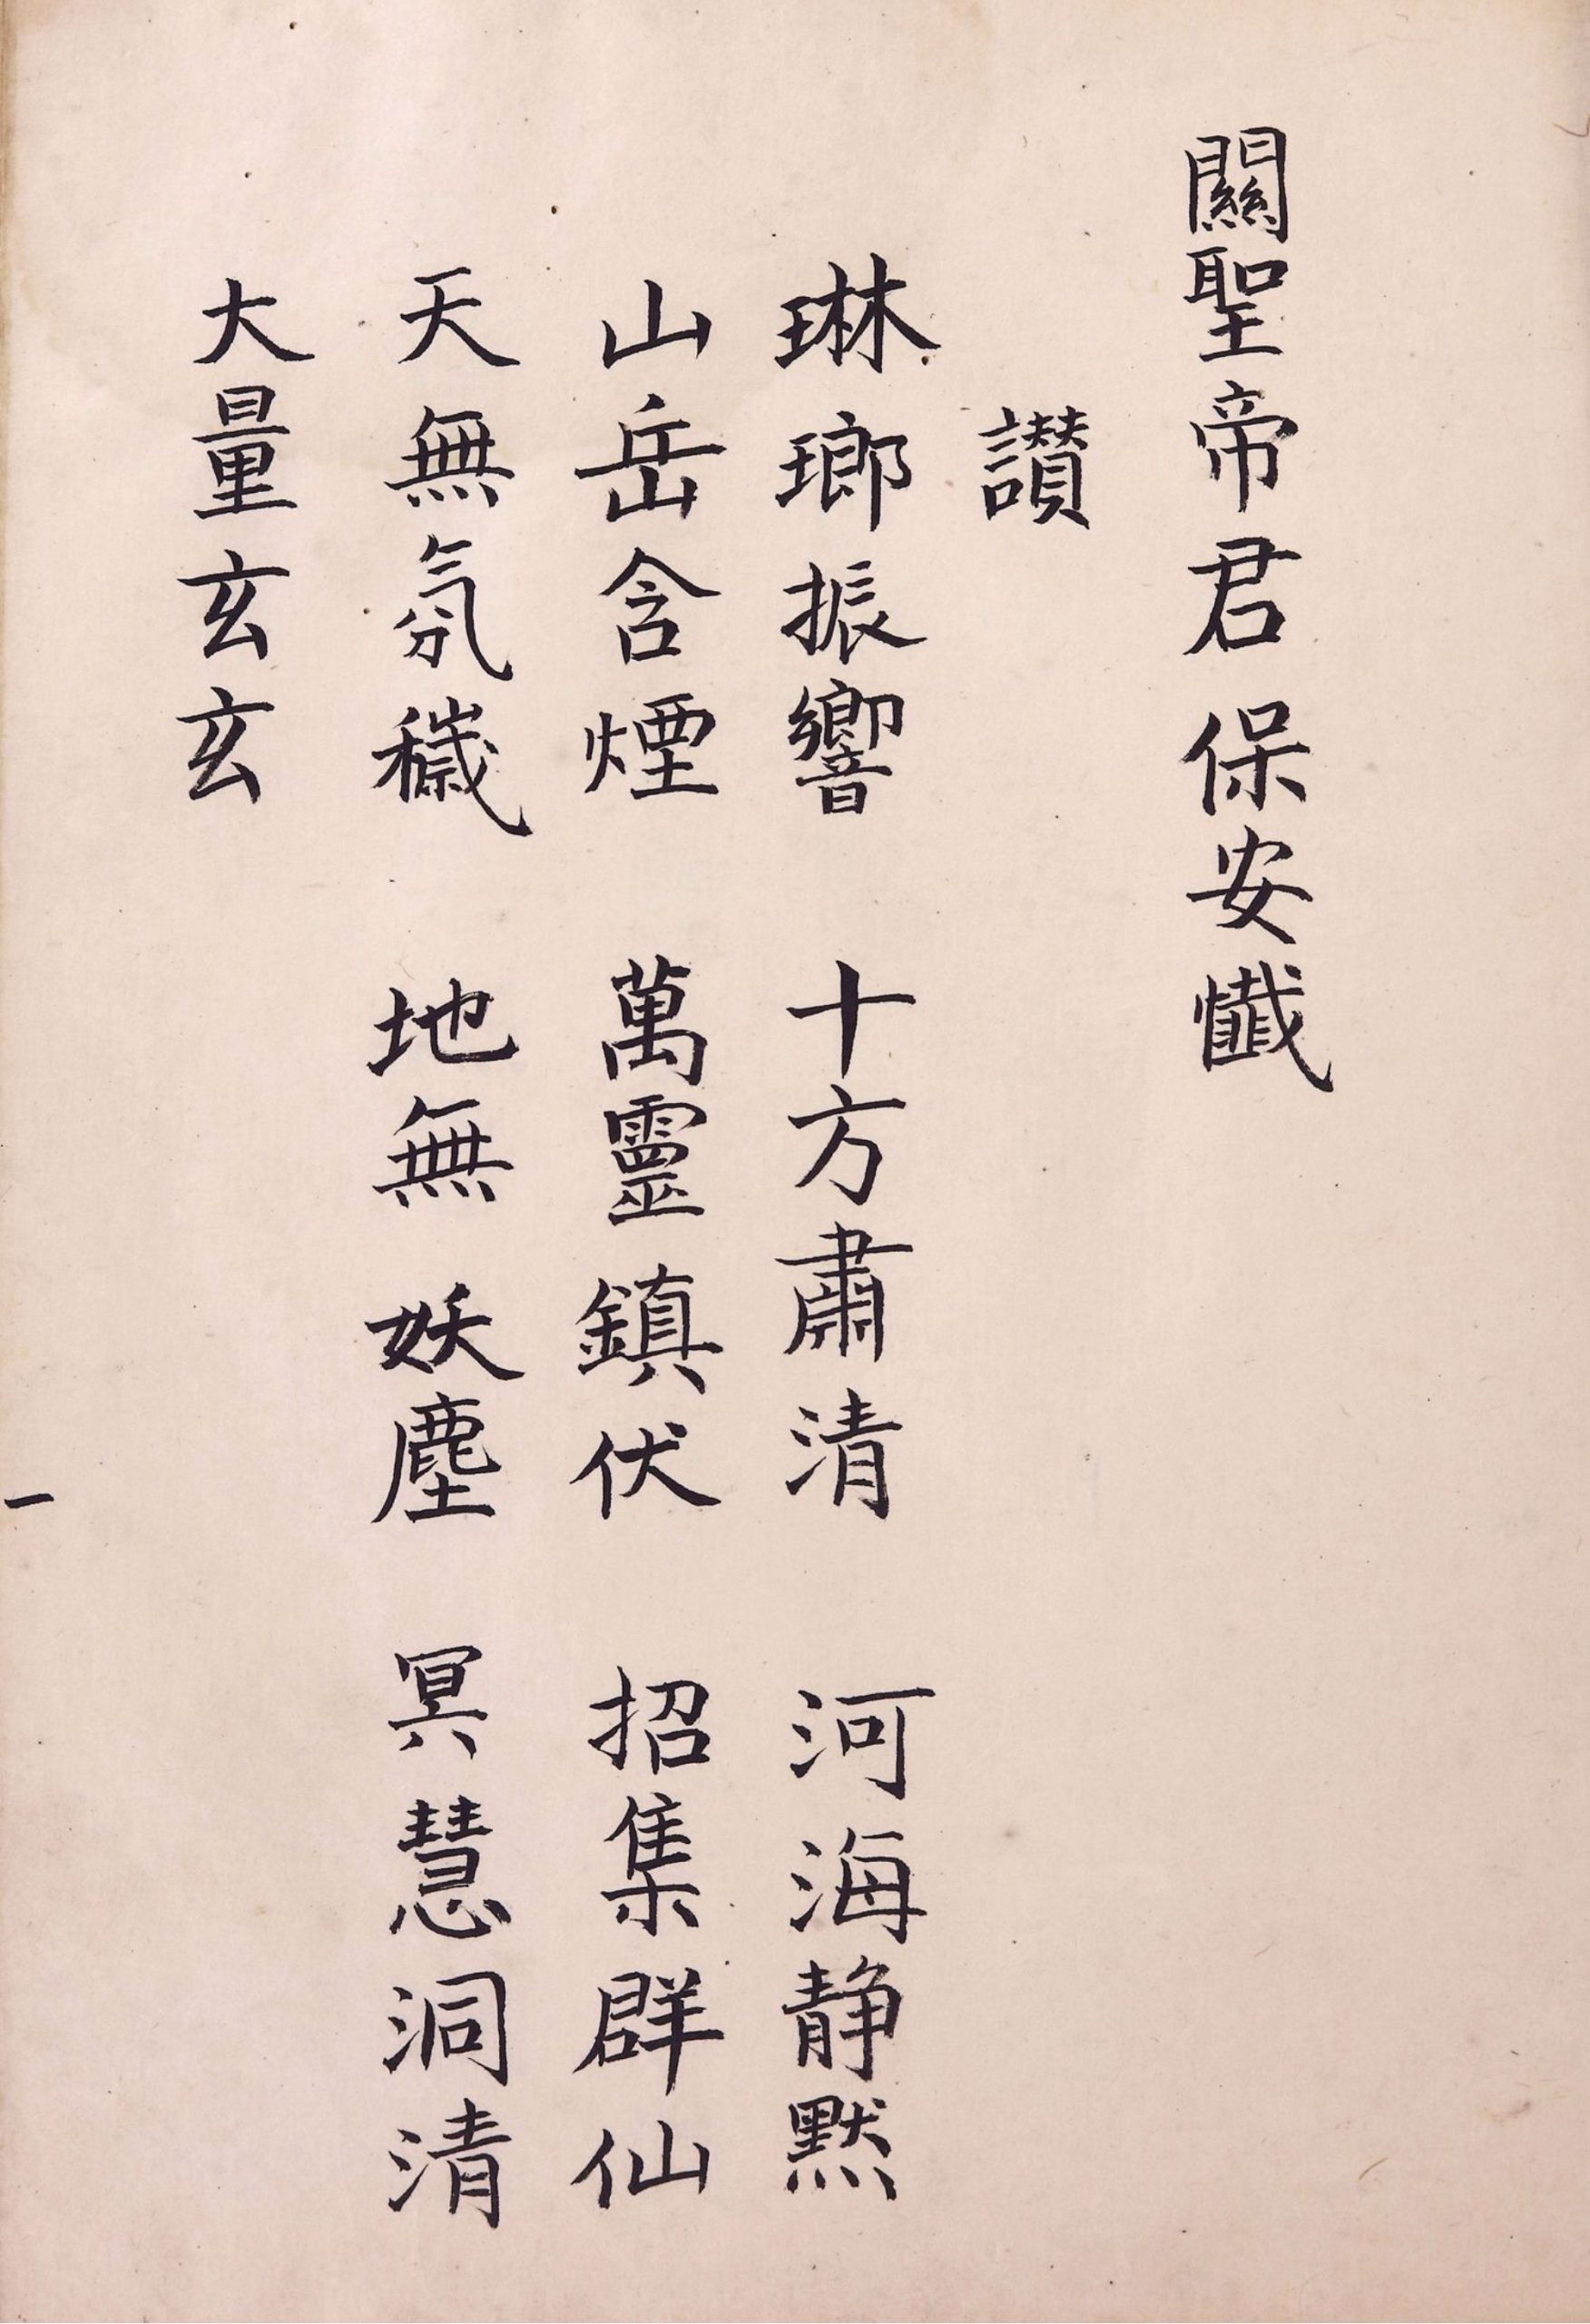 關聖帝君保安懺
讃
琳瑯振響　十方肅清　河海静默
山岳含煙　萬靈鎮伏　招集群仙
天無氛穢　地無妖塵　冥慧洞清
大量玄玄
一